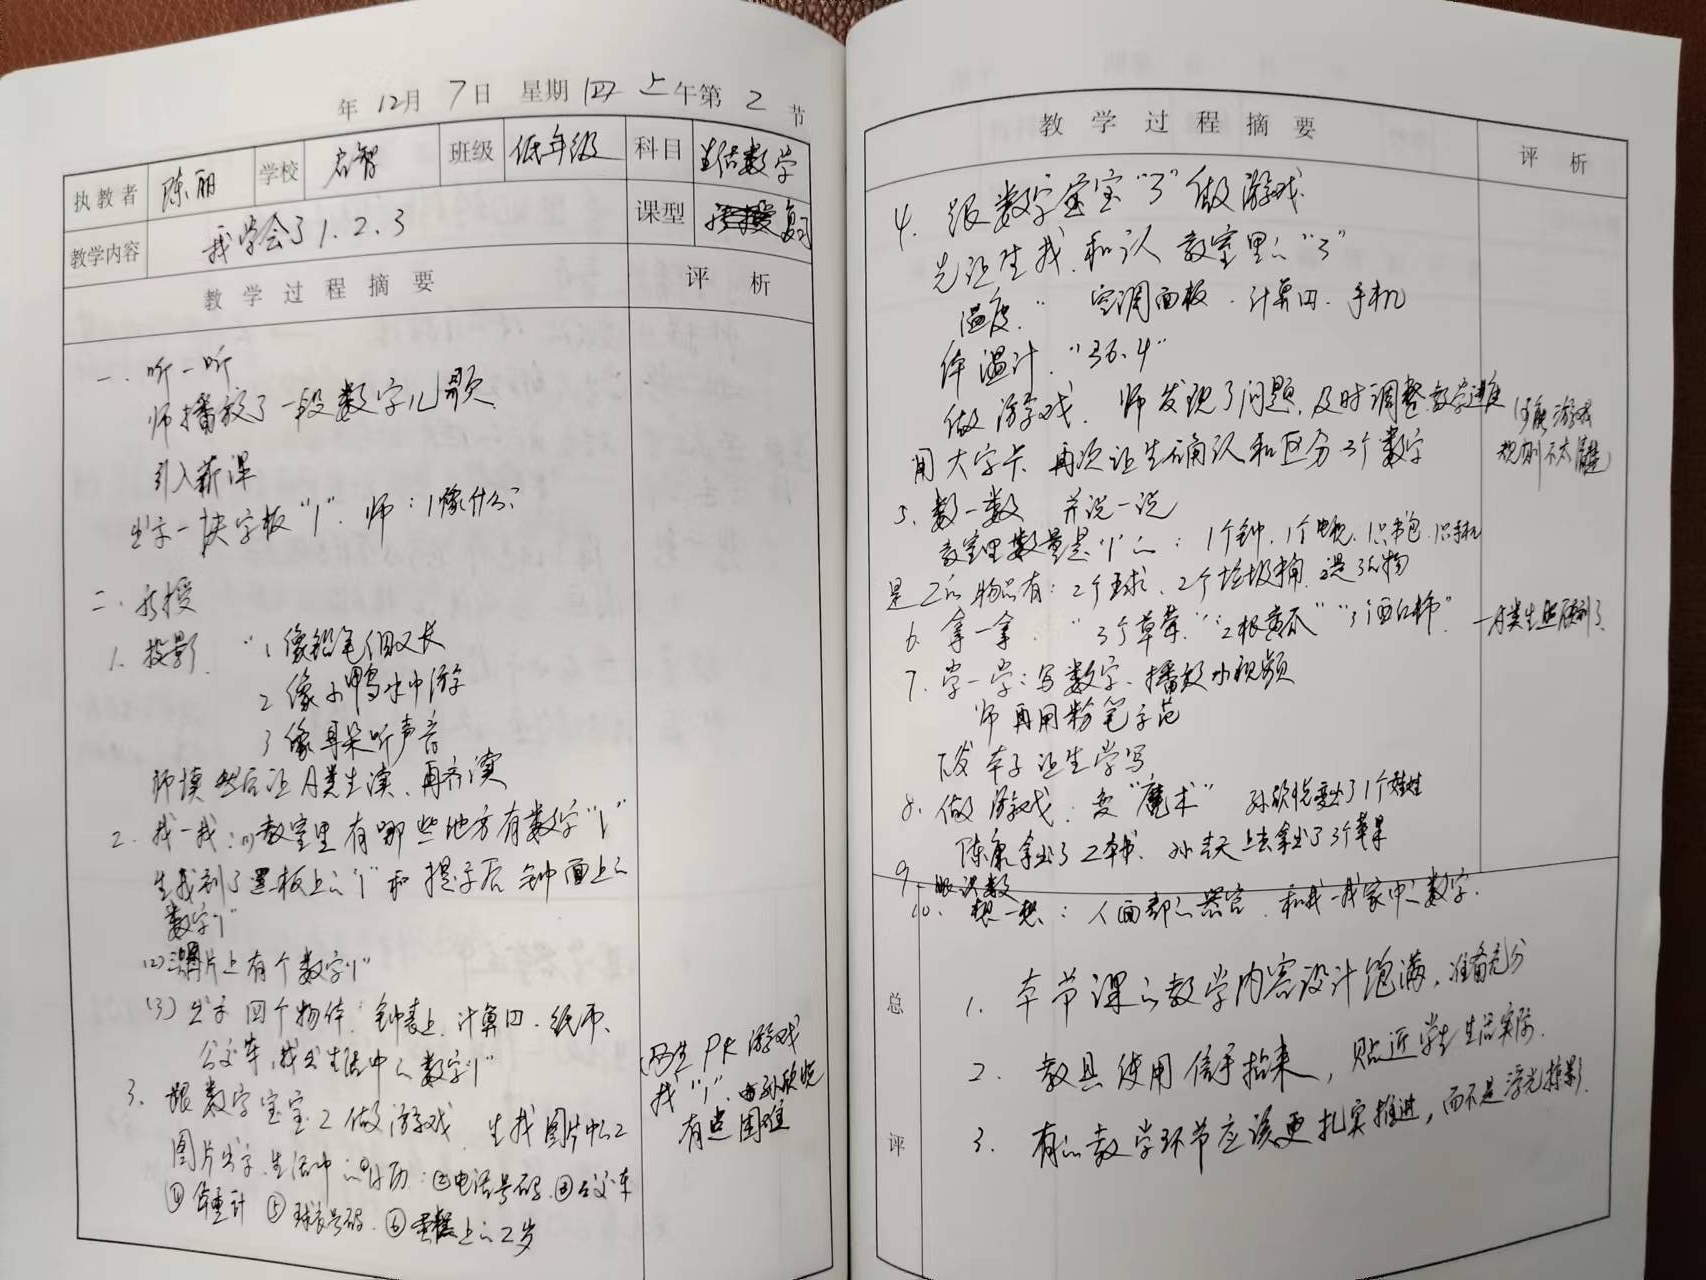 年 12月 7日 星期 四 上午第 2 节
执教者 陈丽 学校 启智 班级 低年级 科目 生活数学
教学内容 我学会了1、2、3 课型 复习
教学过程摘要 评析
一、听一听
师播放了一段数字儿歌
引入新课
出示一块字板"1". 师:1像什么?
二、新授
1. 投影. "1像铅笔细又长
2像小鸭水中游
3像耳朵听声音
师读 然后让A类生读、再齐读
2. 找一找:(1)教室里有哪些地方有数字"1"
生找到了黑板上的"1"和 提示后 钟面上的
数字"1"
(2)图片上有个数字"1"
(3) 出示 四个物体:钟表上、计算四、纸币、
公交车,找出生活中的数字"1"
(两生PK游戏
找"1". 孙欣悦
有点困难
3. 跟数字宝宝2做游戏. 生找图片中的2
图片出示.生活中的①日历:②电话号码.③公交车
④体重计 ⑤球衣号码. ⑥蛋糕上的2岁
教学过程摘要 评析
4. 跟数字宝宝"3"做游戏
先让生找.和认 教室里的"3"
温度." 空调面板.计算四.手机
体温计."36.4"
做游戏. 师发现了问题.及时调整教学进度
(可能游戏
规则不太懂)
用大字卡 再次让生确认和区分3个数字
5. 数一数 并说一说
教室里数量是"1"的:1个钟.1个电视.1只书包.1只手机
是2的物品有:2个球.2个垃圾桶.
6. 拿一拿."3个草莓""2根黄瓜""3个西红柿".
7. 学一学:写数字.播放小视频
师再用粉笔示范
下发本子让生学写
8. 做游戏:变"魔术" 孙欣悦变出了1个娃娃
陈康拿出了2本书. 孙 上去拿出了3个苹果
9.
10. 想一想:人面部的器官.和找一找家中的数字.
总评
1. 本节课的教学内容设计饱满.准备充分
2. 教具使用信手拈来,贴近学生生活实际.
3. 有的教学环节应该更扎实推进,而不是浮光掠影.